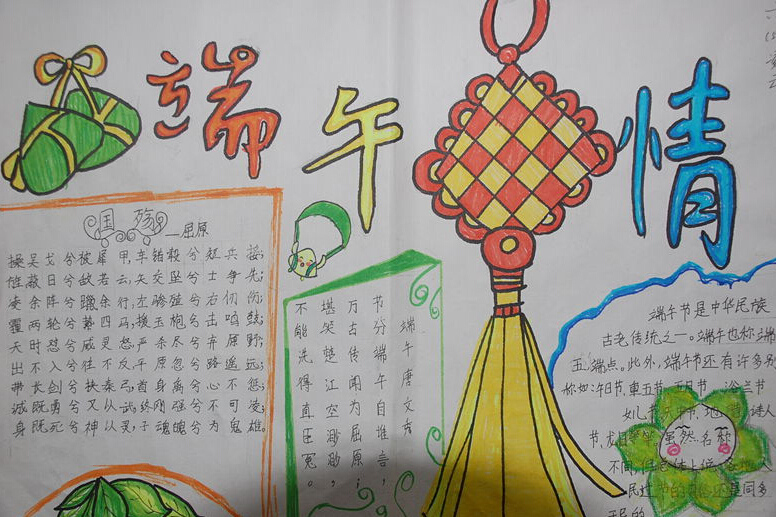 端午情
国殇
—屈原
操吴戈兮被犀甲,车错毂兮短兵接;
旌蔽日兮敌若云,矢交坠兮士争先;
凌余阵兮躐余行,左骖殪兮右刃伤;
霾两轮兮絷四马,援玉枹兮击鸣鼓;
天时怼兮威灵怒,严杀尽兮弃原野;
出不入兮往不反,平原忽兮路遥远;
带长剑兮挟秦弓,首身离兮心不惩;
诚既勇兮又以武,终刚强兮不可凌;
身既死兮神以灵,子魂魄兮为鬼雄。
端午唐文秀
节分端午自谁言,
万古传闻为屈原;
堪笑楚江空渺渺,
不能洗得直臣冤。
端午节是中华民族
古老传统之一。端午也称端
五,端点。此外,端午节还有许多别
称如:午日节、重五节、五月节、浴兰节
女儿节、天中节、地腊、诗人
节、龙日等等。虽然名称
不同,但总体上说,各地人
民过节的习俗还是同多
于异的